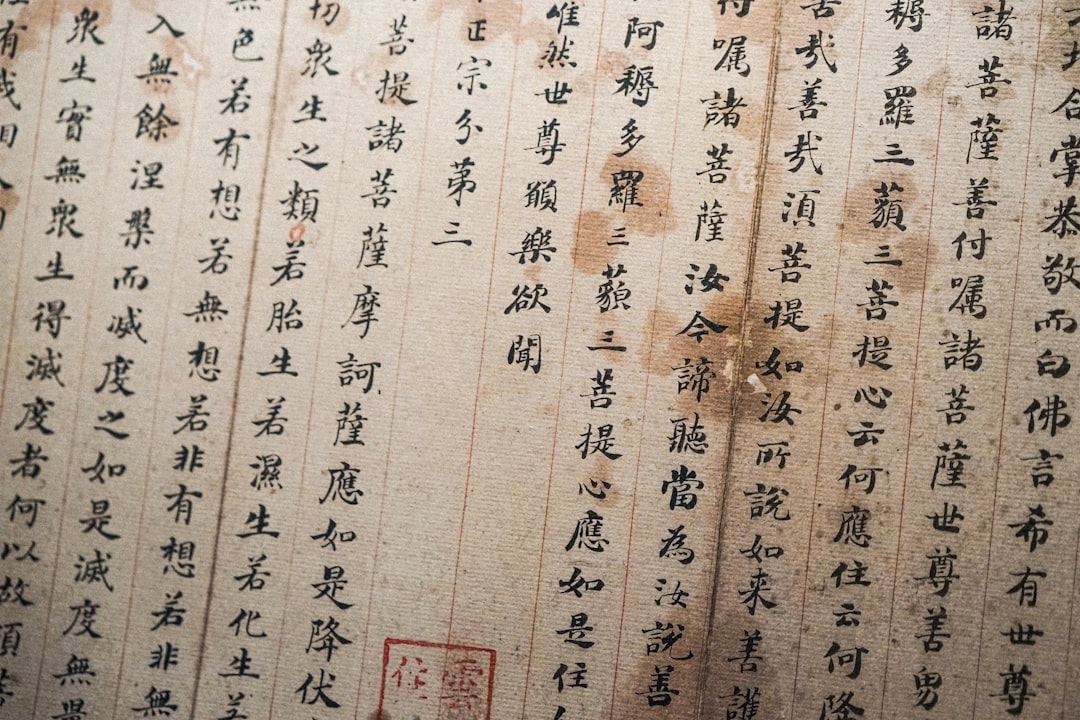 地合掌恭敬而白佛言希有世尊
諸菩薩善付囑諸菩薩世尊善男
耨多羅三藐三菩提心云何應住云何降
善哉善哉湏菩提如汝所說如来善護
付囑諸菩薩汝今諦聽當為汝說善
阿耨多羅三藐三菩提心應如是住
唯然世尊願樂欲聞
正宗分第三
菩提諸菩薩摩訶薩應如是降伏
切衆生之類若胎生若濕生若化生若
無色若有想若無想若非有想若非無
入無餘涅槃而滅度之如是滅度無量
衆生實無衆生得滅度者何以故須菩
有我相人
雲
住